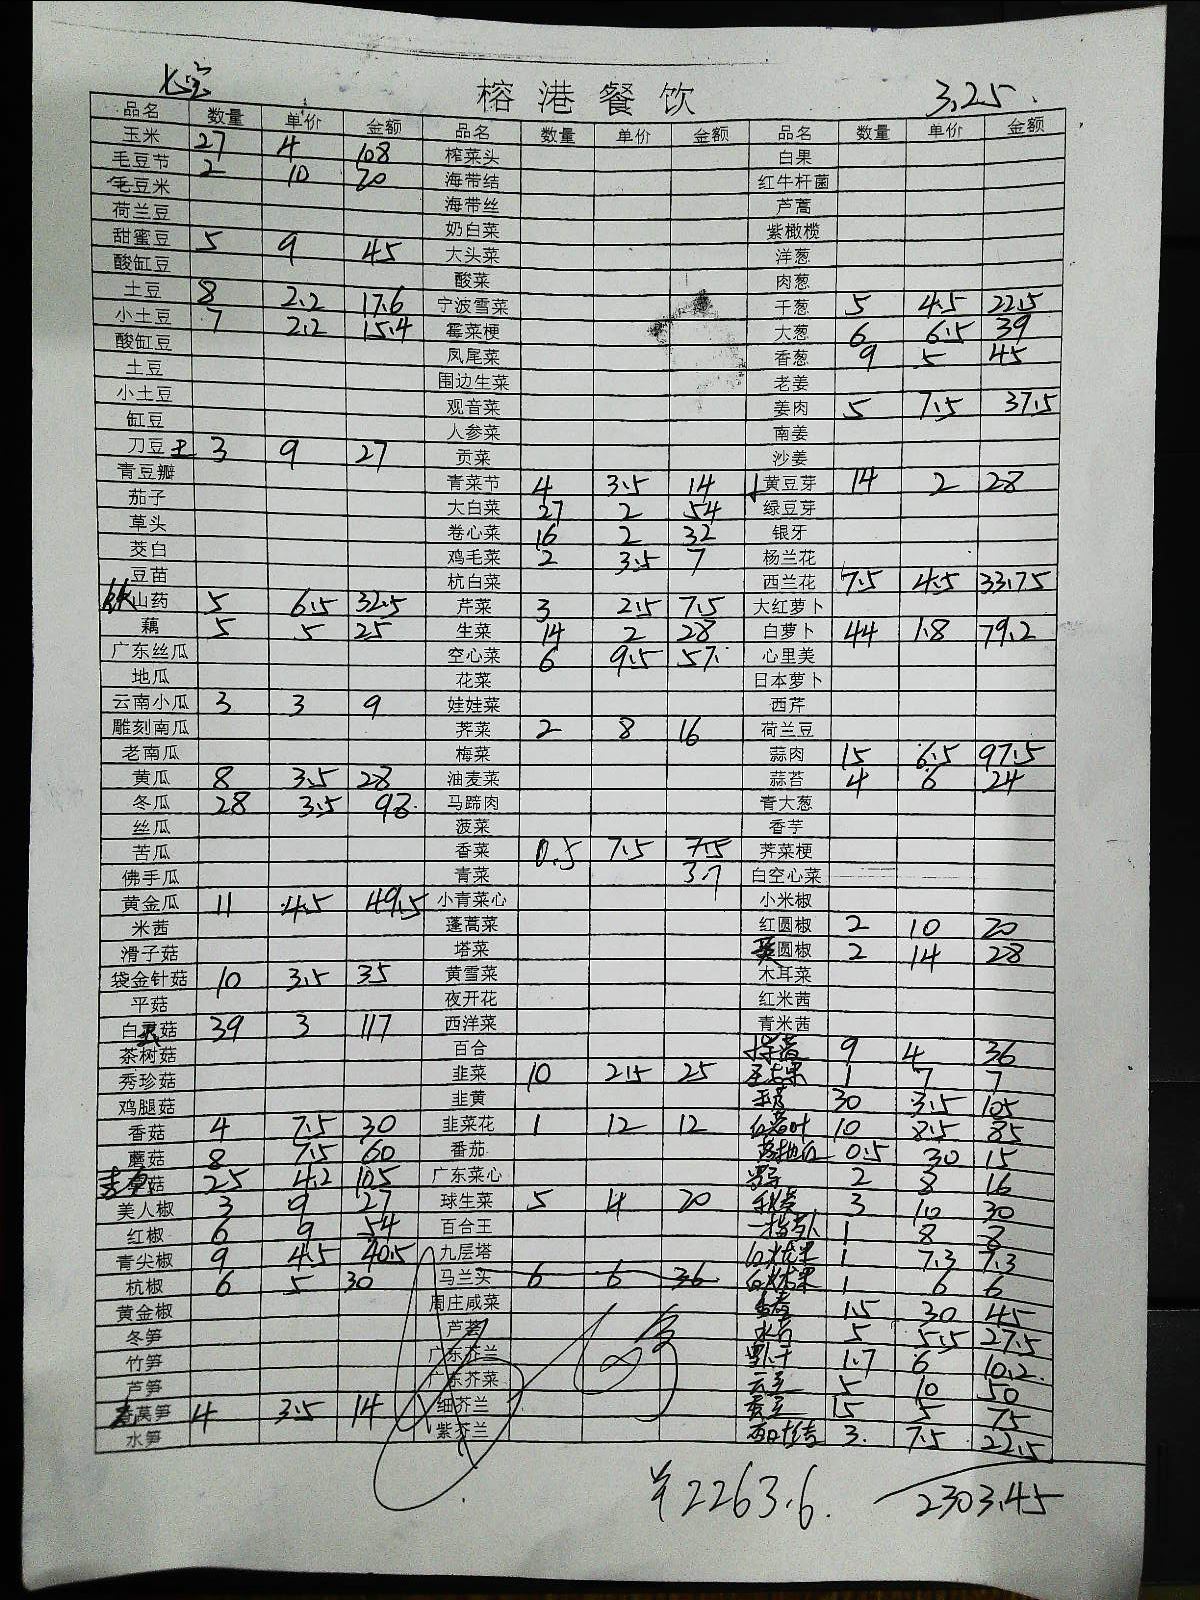 榕港餐饮 3.25.
品名 数量 单价 金额 品名 数量 单价 金额 品名 数量 单价 金额
玉米 27 4 108 榨菜头 白果
毛豆节 2 10 20 海带结 红牛杆菌
毛豆米 海带丝 芦蒿
荷兰豆 奶白菜 紫橄榄
甜蜜豆 5 9 45 大头菜 洋葱
酸缸豆 酸菜 肉葱
土豆 8 2.2 17.6 宁波雪菜 干葱 5 4.5 22.5
小土豆 7 2.2 15.4 霉菜梗 大葱 6 6.5 39
酸缸豆 凤尾菜 香葱 9 5 45
土豆 围边生菜 老姜
小土豆 观音菜 姜肉 5 7.5 37.5
缸豆 人参菜 南姜
刀豆 3 9 27 贡菜 沙姜
青豆瓣 青菜节 4 3.5 14 黄豆芽 14 2 28
茄子 大白菜 27 2 54 绿豆芽
草头 卷心菜 16 2 32 银牙
茭白 鸡毛菜 2 3.5 7 杨兰花
豆苗 杭白菜 西兰花 7.5 4.5 33.75
铁山药 5 6.5 32.5 芹菜 3 2.5 7.5 大红萝卜
藕 5 5 25 生菜 14 2 28 白萝卜 44 1.8 79.2
广东丝瓜 空心菜 6 9.5 57. 心里美
地瓜 花菜 日本萝卜
云南小瓜 3 3 9 娃娃菜 西芹
雕刻南瓜 荠菜 2 8 16 荷兰豆
老南瓜 梅菜 蒜肉 15 6.5 97.5
黄瓜 8 3.5 28 油麦菜 蒜苔 4 6 24
冬瓜 28 3.5 98. 马蹄肉 青大葱
丝瓜 菠菜 香芋
苦瓜 香菜 0.5 7.5 7.5 荠菜梗
佛手瓜 青菜 3.7 白空心菜
黄金瓜 11 4.5 49.5 小青菜心 小米椒
米茜 蓬蒿菜 红圆椒 2 10 20
滑子菇 塔菜 圆椒 2 14 28
袋金针菇 10 3.5 35 黄雪菜 木耳菜
平菇 夜开花 红米茜
白菇 39 3 117 西洋菜 青米茜
茶树菇 百合 9 4 36
秀珍菇 韭菜 10 2.5 25 1 7 7
鸡腿菇 韭黄 30 3.5 105
香菇 4 7.5 30 韭菜花 1 12 12 10 8.5 85
蘑菇 8 7.5 60 番茄 0.5 30 15
菇 25 4.2 105 广东菜心 2 8 16
美人椒 3 9 27 球生菜 5 4 20 3 10 30
红椒 6 9 54 百合王 1 8 8
青尖椒 9 4.5 40.5 九层塔 1 7.3 7.3
杭椒 6 5 30 马兰头 6 6 36 1 6 6
黄金椒 周庄咸菜 1.5 30 45
冬笋 芦荟 5 5.5 27.5
竹笋 广东芥兰 1.7 6 10.2
芦笋 广东芥菜 5 10 50
莴笋 4 3.5 14 细芥兰 黄豆 15 5 75
水笋 紫芥兰 3. 7.5 22.5
¥2263.6. 2303.45